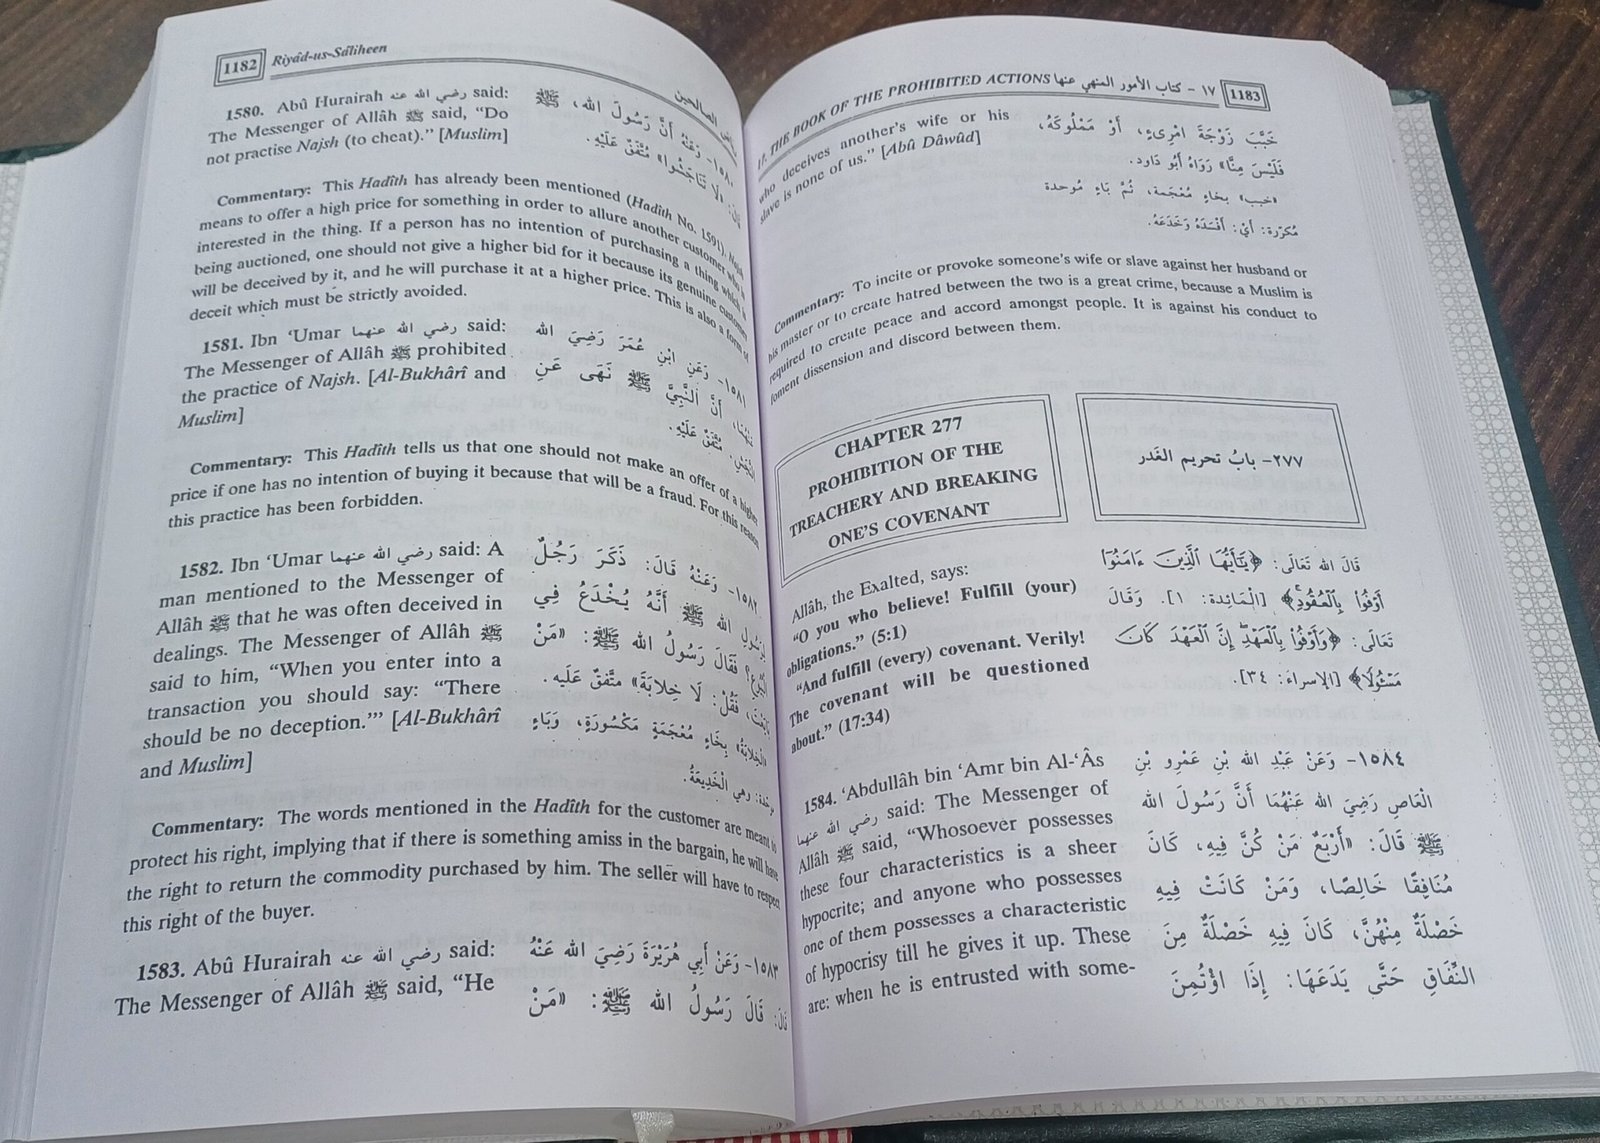 1182 Riyâd-us-Sâliheen
الصالحين
1580. Abû Hurairah رضي الله عنه said:
The Messenger of Allâh ﷺ said, “Do
not practise Najsh (to cheat).” [Muslim]
١٥٨٠- وَعَنْهُ أَنَّ رَسُولَ الله، ﷺ
قَالَ: «لَا تَنَاجَشُوا» مُتَّفَقٌ عَلَيْهِ.
Commentary: This Hadîth has already been mentioned (Hadîth No. 1591). Najsh
means to offer a high price for something in order to allure another customer who is
interested in the thing. If a person has no intention of purchasing a thing which is
being auctioned, one should not give a higher bid for it because its genuine customer
will be deceived by it, and he will purchase it at a higher price. This is also a form of
deceit which must be strictly avoided.
1581. Ibn ‘Umar رضي الله عنهما said:
The Messenger of Allâh ﷺ prohibited
the practice of Najsh. [Al-Bukhârî and
Muslim]
١٥٨١- وَعَنِ ابْنِ عُمَرَ رَضِيَ الله
عَنْهُمَا، أَنَّ النَّبِيَّ ﷺ نَهَى عَنِ
النَّجَشِ. مُتَّفَقٌ عَلَيْهِ.
Commentary: This Hadîth tells us that one should not make an offer of a higher
price if one has no intention of buying it because that will be a fraud. For this reason
this practice has been forbidden.
1582. Ibn ‘Umar رضي الله عنهما said: A
man mentioned to the Messenger of
Allâh ﷺ that he was often deceived in
dealings. The Messenger of Allâh ﷺ
said to him, “When you enter into a
transaction you should say: “There
should be no deception.’” [Al-Bukhârî
and Muslim]
١٥٨٢- وَعَنْهُ قَالَ: ذَكَرَ رَجُلٌ
لِرَسُولِ الله ﷺ أَنَّهُ يُخْدَعُ فِي
الْبُيُوعِ؟ فَقَالَ رَسُولُ الله ﷺ: «مَنْ
بَايَعْتَ، فَقُلْ: لَا خِلابَةَ» متَّفقٌ عَلَيه.
«الْخِلابَةُ» بِخَاءٍ مُعْجَمَةٍ مَكْسُورَةٍ، وَبَاءٍ
مُوَحَّدَة: وهي الْخَدِيعَةُ.
Commentary: The words mentioned in the Hadîth for the customer are meant to
protect his right, implying that if there is something amiss in the bargain, he will have
the right to return the commodity purchased by him. The seller will have to respect
this right of the buyer.
1583. Abû Hurairah رضي الله عنه said:
The Messenger of Allâh ﷺ said, “He
١٥٨٣- وَعَنْ أَبِي هُرَيْرَةَ رَضِيَ الله عَنْهُ
قَالَ: قَالَ رَسُولُ الله ﷺ: «مَنْ
17. THE BOOK OF THE PROHIBITED ACTIONS ١٧ - كتاب الأمور المنهي عنها 1183
who deceives another’s wife or his
slave is none of us.” [Abû Dâwûd]
خَبَّبَ زَوْجَةَ امْرِىءٍ، أَوْ مَمْلُوكَهُ،
فَلَيْسَ مِنَّا» رَوَاهُ أَبُو دَاود.
«خبب» بخاءٍ مُعْجَمة، ثُمَّ بَاءٍ مُوحدة
مُكرّرة: أيْ: أَفْسَدَهُ وَخَدَعَهُ.
Commentary: To incite or provoke someone’s wife or slave against her husband or
his master or to create hatred between the two is a great crime, because a Muslim is
required to create peace and accord amongst people. It is against his conduct to
foment dissension and discord between them.
CHAPTER 277
PROHIBITION OF THE
TREACHERY AND BREAKING
ONE’S COVENANT
٢٧٧- بابُ تحريم الغَدر
Allâh, the Exalted, says:
“O you who believe! Fulfill (your)
obligations.” (5:1)
“And fulfill (every) covenant. Verily!
The covenant will be questioned
about.” (17:34)
قَالَ الله تَعَالَى: ﴿يَٰٓأَيُّهَا ٱلَّذِينَ ءَامَنُوٓا۟
أَوْفُوا۟ بِٱلْعُقُودِ﴾ [المَائِدة: ١]. وَقَالَ
تَعَالَى: ﴿وَأَوْفُوا۟ بِٱلْعَهْدِ إِنَّ ٱلْعَهْدَ كَانَ
مَسْـُٔولًا﴾ [الإسراء: ٣٤].
1584. ‘Abdullâh bin ‘Amr bin Al-‘Âs
رضي الله عنهما said: The Messenger of
Allâh ﷺ said, “Whosoever possesses
these four characteristics is a sheer
hypocrite; and anyone who possesses
one of them possesses a characteristic
of hypocrisy till he gives it up. These
are: when he is entrusted with some-
١٥٨٤- وَعَنْ عَبْدِ الله بْنِ عَمْرِو بْنِ
الْعَاصِ رَضِيَ الله عَنْهُمَا أَنَّ رَسُولَ الله
ﷺ قَالَ: «أَرْبَعٌ مَنْ كُنَّ فِيهِ، كَانَ
مُنَافِقًا خَالِصًا، وَمَنْ كَانَتْ فِيهِ
خَصْلَةٌ مِنْهُنَّ، كَانَ فِيهِ خَصْلَةٌ مِنَ
النِّفَاقِ حَتَّى يَدَعَهَا: إِذَا اؤْتُمِنَ